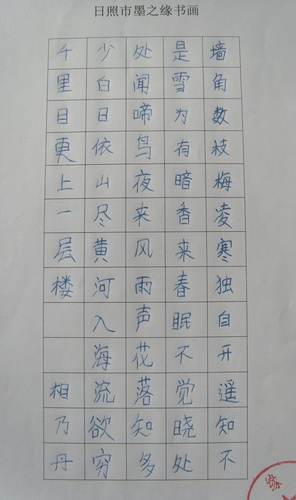 日照市墨之缘书画
墙角数枝梅凌寒独自开遥知不
是雪为有暗香来春眠不觉晓处
处闻啼鸟夜来风雨声花落知多
少白日依山尽黄河入海流欲穷
千里目更上一层楼 相乃丹